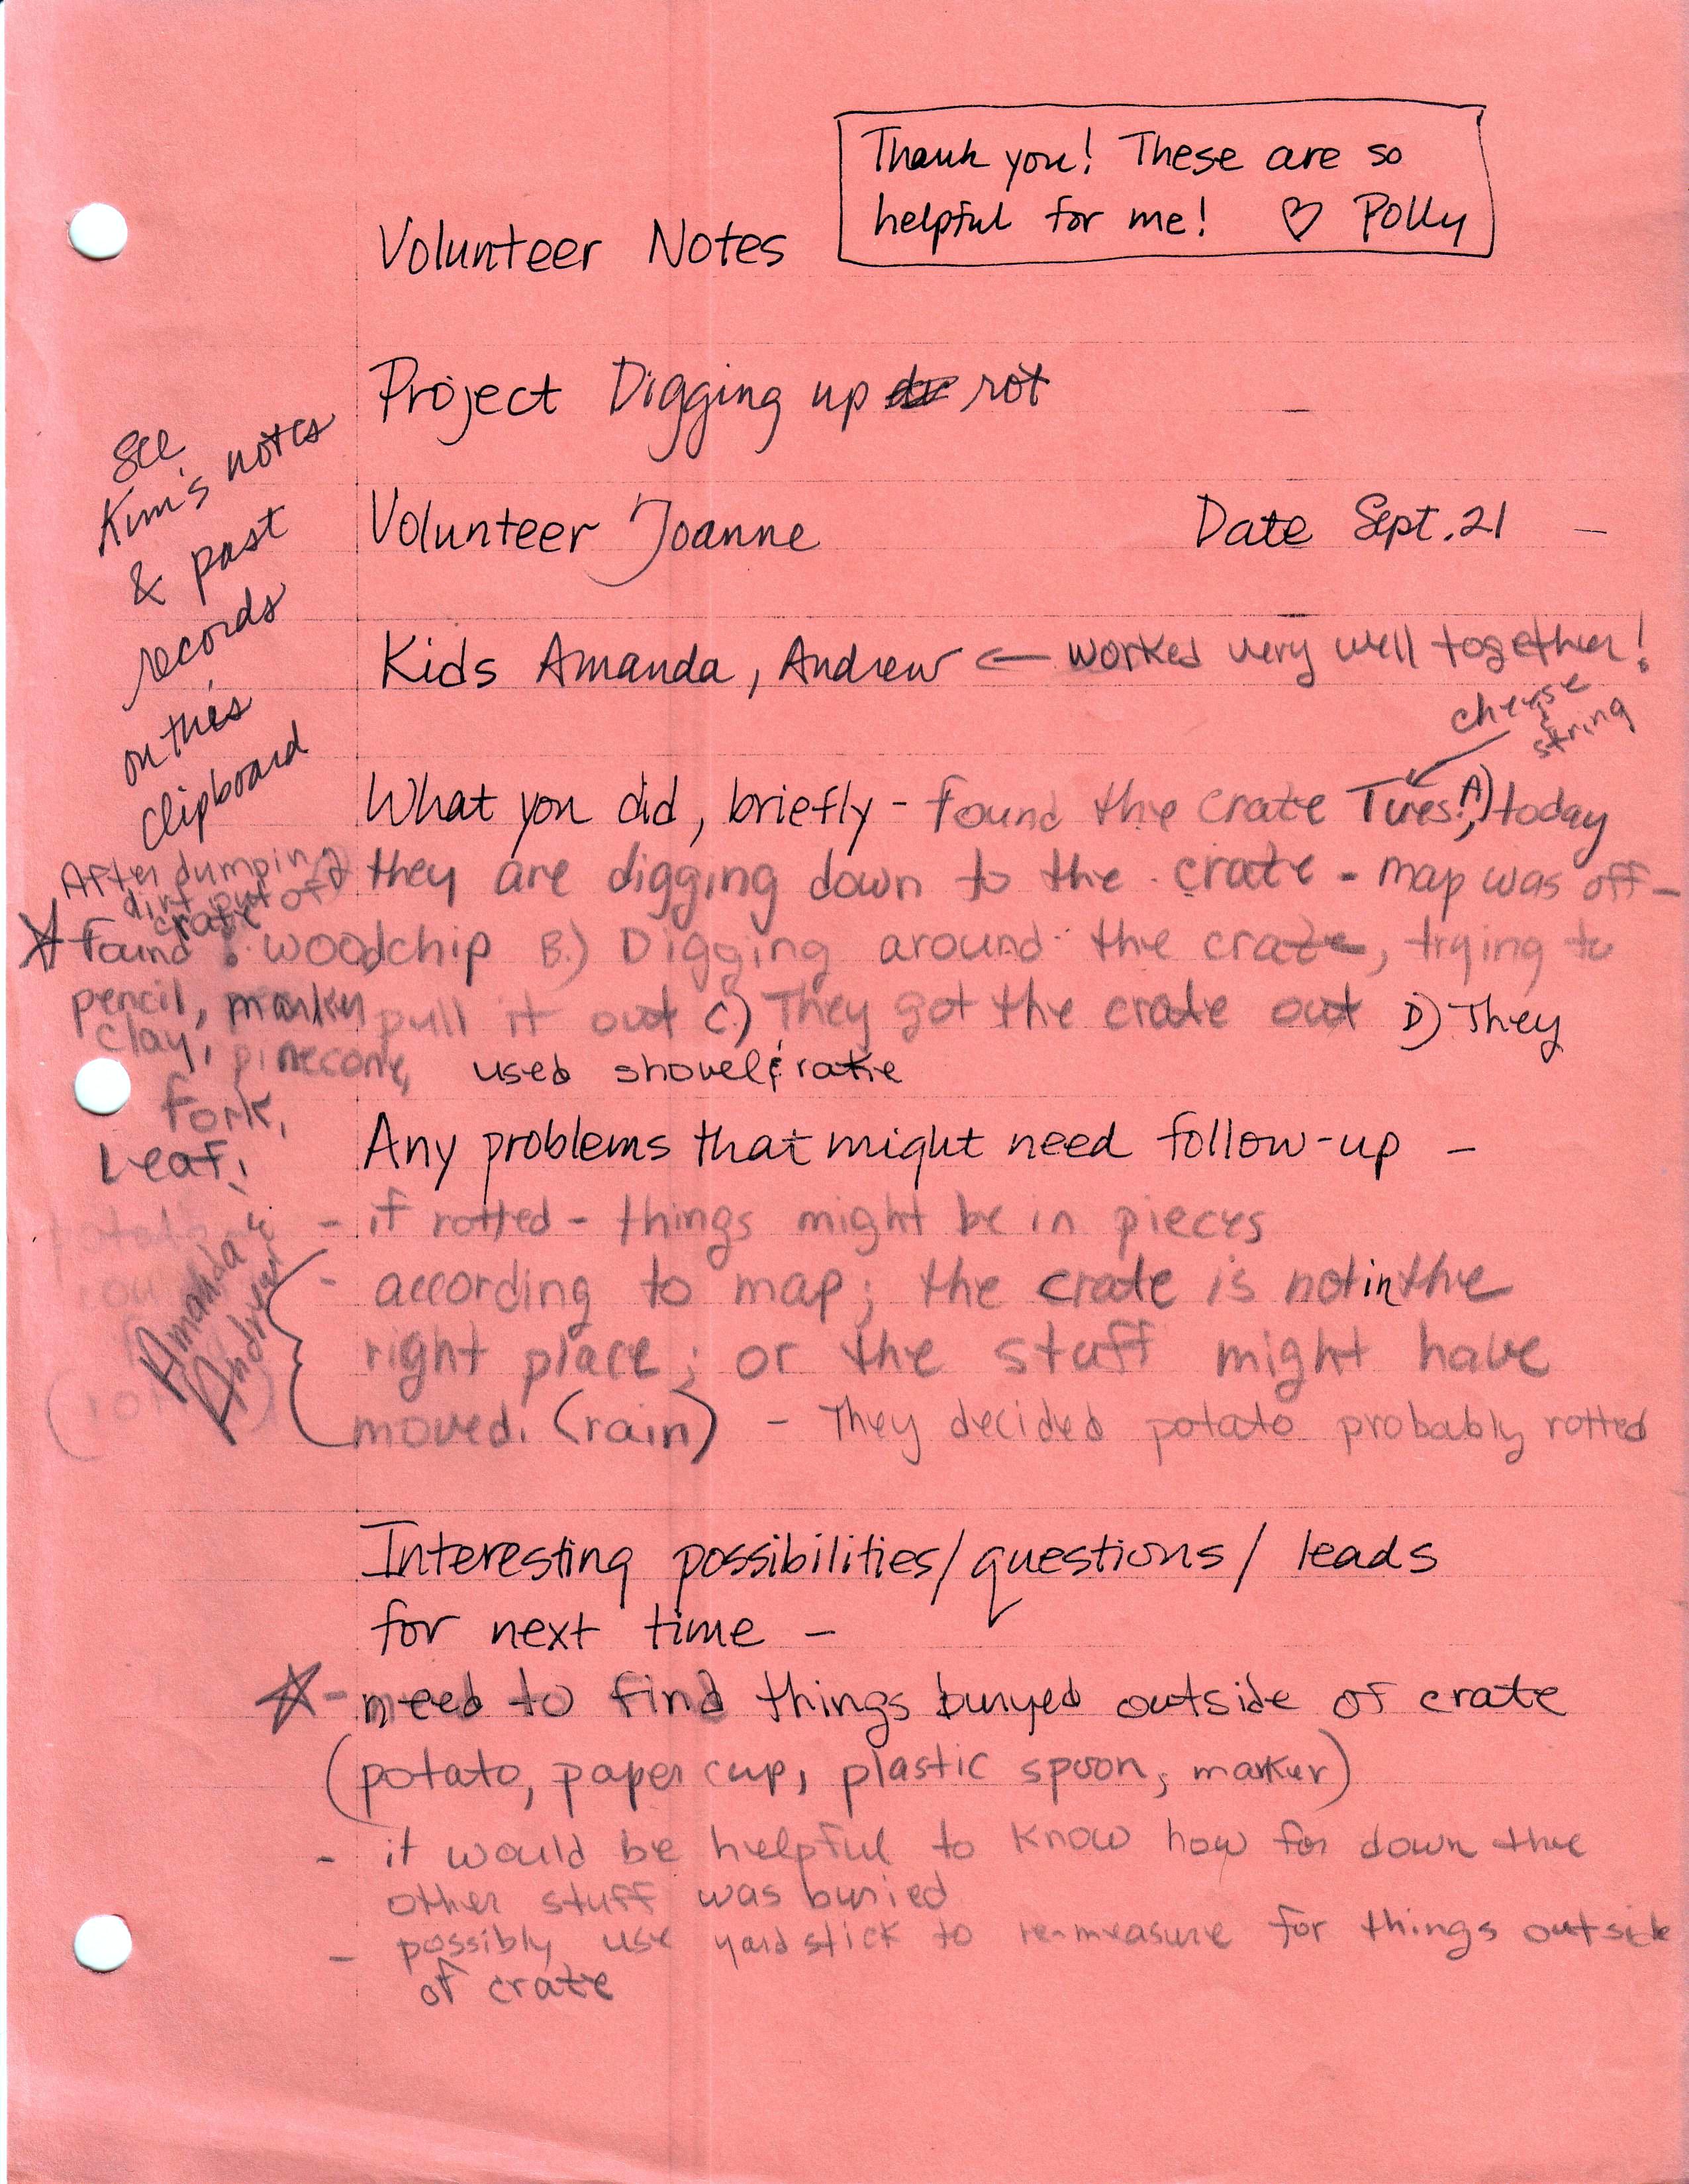 Thank you! These are so
helpful for me! ♡ Polly
Volunteer Notes
Project Digging up rot
See
Kim's notes
& past
records
on this
clipboard
Volunteer Joanne Date Sept. 21
Kids Amanda, Andrew ← worked very well together!
cheese
& string
What you did, briefly - Found the crate Tues.! A) today
they are digging down to the crate - map was off -
B.) Digging around the crate, trying to
pull it out C.) They got the crate out D) They
used shovel & rake
After dumping
dirt out of
crate
☆ Found: woodchip
pencil, marker
clay, pinecone,
fork,
Leaf,
potato
Any problems that might need follow-up -
- if rotted - things might be in pieces
Amanda &
Andrew
- according to map; the crate is not in the
right place; or the stuff might have
moved. (rain) - They decided potato probably rotted
Interesting possibilities/questions/leads
for next time -
☆ - need to find things buryed outside of crate
(potato, paper cup, plastic spoon, marker)
- it would be helpful to know how far down the
other stuff was buried
- possibly use yard stick to re-measure for things outside
of crate